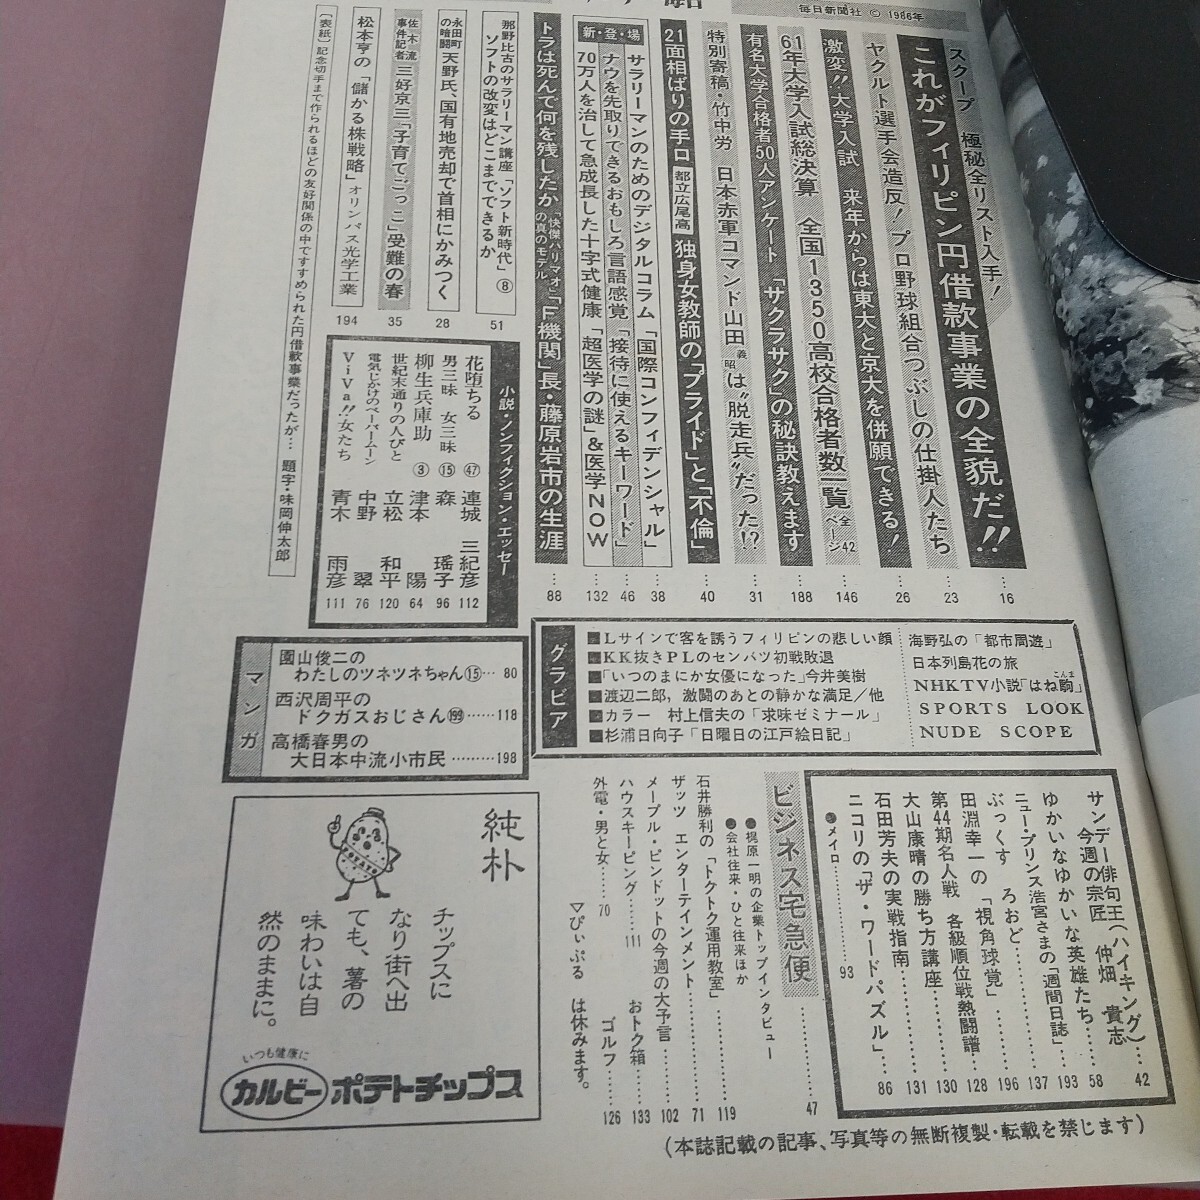 毎日新聞社 © 1986年
スクープ 極秘全リスト入手!
これがフィリピン円借款事業の全貌だ!! 16
ヤクルト選手会造反! プロ野球組合つぶしの仕掛人たち 23
激変!! 大学入試 来年からは東大と京大を併願できる! 26
61年大学入試総決算 全国1350高校合格者数一覧 全42ページ 146
有名大学合格者50人アンケート「サクラサク」の秘訣教えます 188
特別寄稿・竹中労 日本赤軍コマンド山田義昭は“脱走兵”だった!? 31
21面相ばりの手口 都立広尾高 独身女教師の「プライド」と「不倫」 40
新・登・場
サラリーマンのためのデジタルコラム「国際コンフィデンシャル」 38
ナウを先取りできるおもしろ言語感覚「接待に使えるキーワード」 46
70万人を治して急成長した十字式健康「超医学の謎」&医学NOW 132
トラは死んで何を残したか 「快傑ハリマオ」の真のモデル 「F機関」長・藤原岩市の生涯 88
那野比古のサラリーマン講座「ソフト新時代」⑧
ソフトの改変はどこまでできるか 51
永田町の暗闘 天野氏、国有地売却で首相にかみつく 28
佐木流事件記者 三好京三「子育てごっこ」受難の春 35
松本亨の「儲かる株戦略」オリンパス光学工業 194
〔表紙〕記念切手まで作られるほどの友好関係の中ですすめられた円借款事業だったが… 題字・味岡伸太郎
小説・ノンフィクション・エッセー
花堕ちる ㊼ 連城 三紀彦 112
男三昧 女三昧 ⑮ 森 瑶子 96
柳生兵庫助 ③ 津本 陽 64
世紀末通りの人びと 立松 和平 120
電気じかけのペーパームーン 中野 翠 76
ViVa!!女たち 青木 雨彦 111
グラビア
■Lサインで客を誘うフィリピンの悲しい顔
■KK抜きPLのセンバツ初戦敗退
■「いつのまにか女優になった」今井美樹
■渡辺二郎,激闘のあとの静かな満足/他
■カラー 村上信夫の「求味ゼミナール」
■杉浦日向子「日曜日の江戸絵日記」
海野弘の「都市周遊」
日本列島花の旅
NHKTV小説「はね駒」
こんま
SPORTS LOOK
NUDE SCOPE
マンガ
園山俊二の
わたしのツネツネちゃん⑮… 80
西沢周平の
ドクガスおじさん(199)……118
高橋春男の
大日本中流小市民………198
サンデー俳句王(ハイキング)
今週の宗匠 仲畑 貴志 42
ゆかいなゆかいな英雄たち 58
ニュー・プリンス浩宮さまの「週間日誌」 193
ぶっくす ろおど 137
田淵幸一の「視角球覚」 196
第44期名人戦 各級順位戦熱闘譜 128
大山康晴の勝ち方講座 130
石田芳夫の実戦指南 131
ニコリの「ザ・ワードパズル」 86
●メイロ 93
ビジネス宅急便 47
●梶原一明の企業トップインタビュー
●会社往来・ひと往来ほか
石井勝利の「トクトク運用教室」 119
ザッツ エンターテインメント 71
メーブル・ピンドットの今週の大予言 102
ハウスキーピング……111 おトク箱 133
外電・男と女……70 ゴルフ 126
▽ぴぃぷる は休みます。
純朴
チップスに
なり街へ出
ても、薯の
味わいは自
然のままに。
いつも健康に
カルビー ポテトチップス
(本誌記載の記事、写真等の無断複製・転載を禁じます)